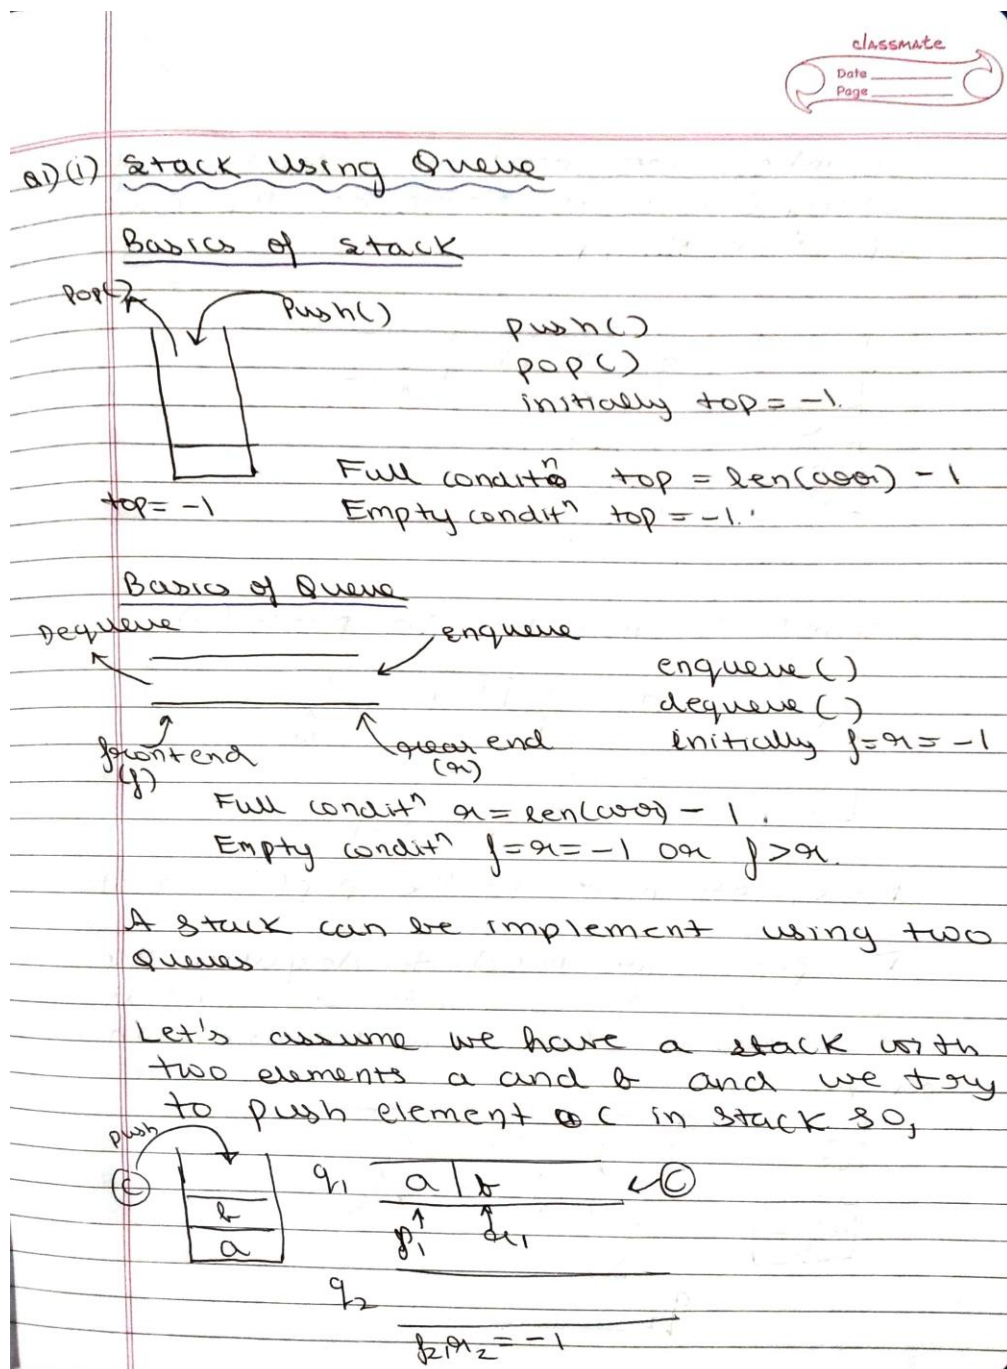 classmate
Date
Page
Q1) (i) Stack Using Queue
Basics of Stack
Pop() Push()
push()
pop()
initially top = -1.
top = -1
Full conditⁿ top = len(arr) - 1
Empty conditⁿ top = -1.
Basics of Queue
Dequeue enqueue
enqueue()
dequeue()
initially f=r=-1
front end rear end
(f) (r)
Full conditⁿ r = len(arr) - 1.
Empty conditⁿ f=r=-1 or f>r.
A stack can be implement using two
Queues
Let's assume we have a stack with
two elements a and b and we try
to push element c in stack so,
push
C q₁ a b C
b f₁ r₁
a
q₂
f₂,r₂ = -1